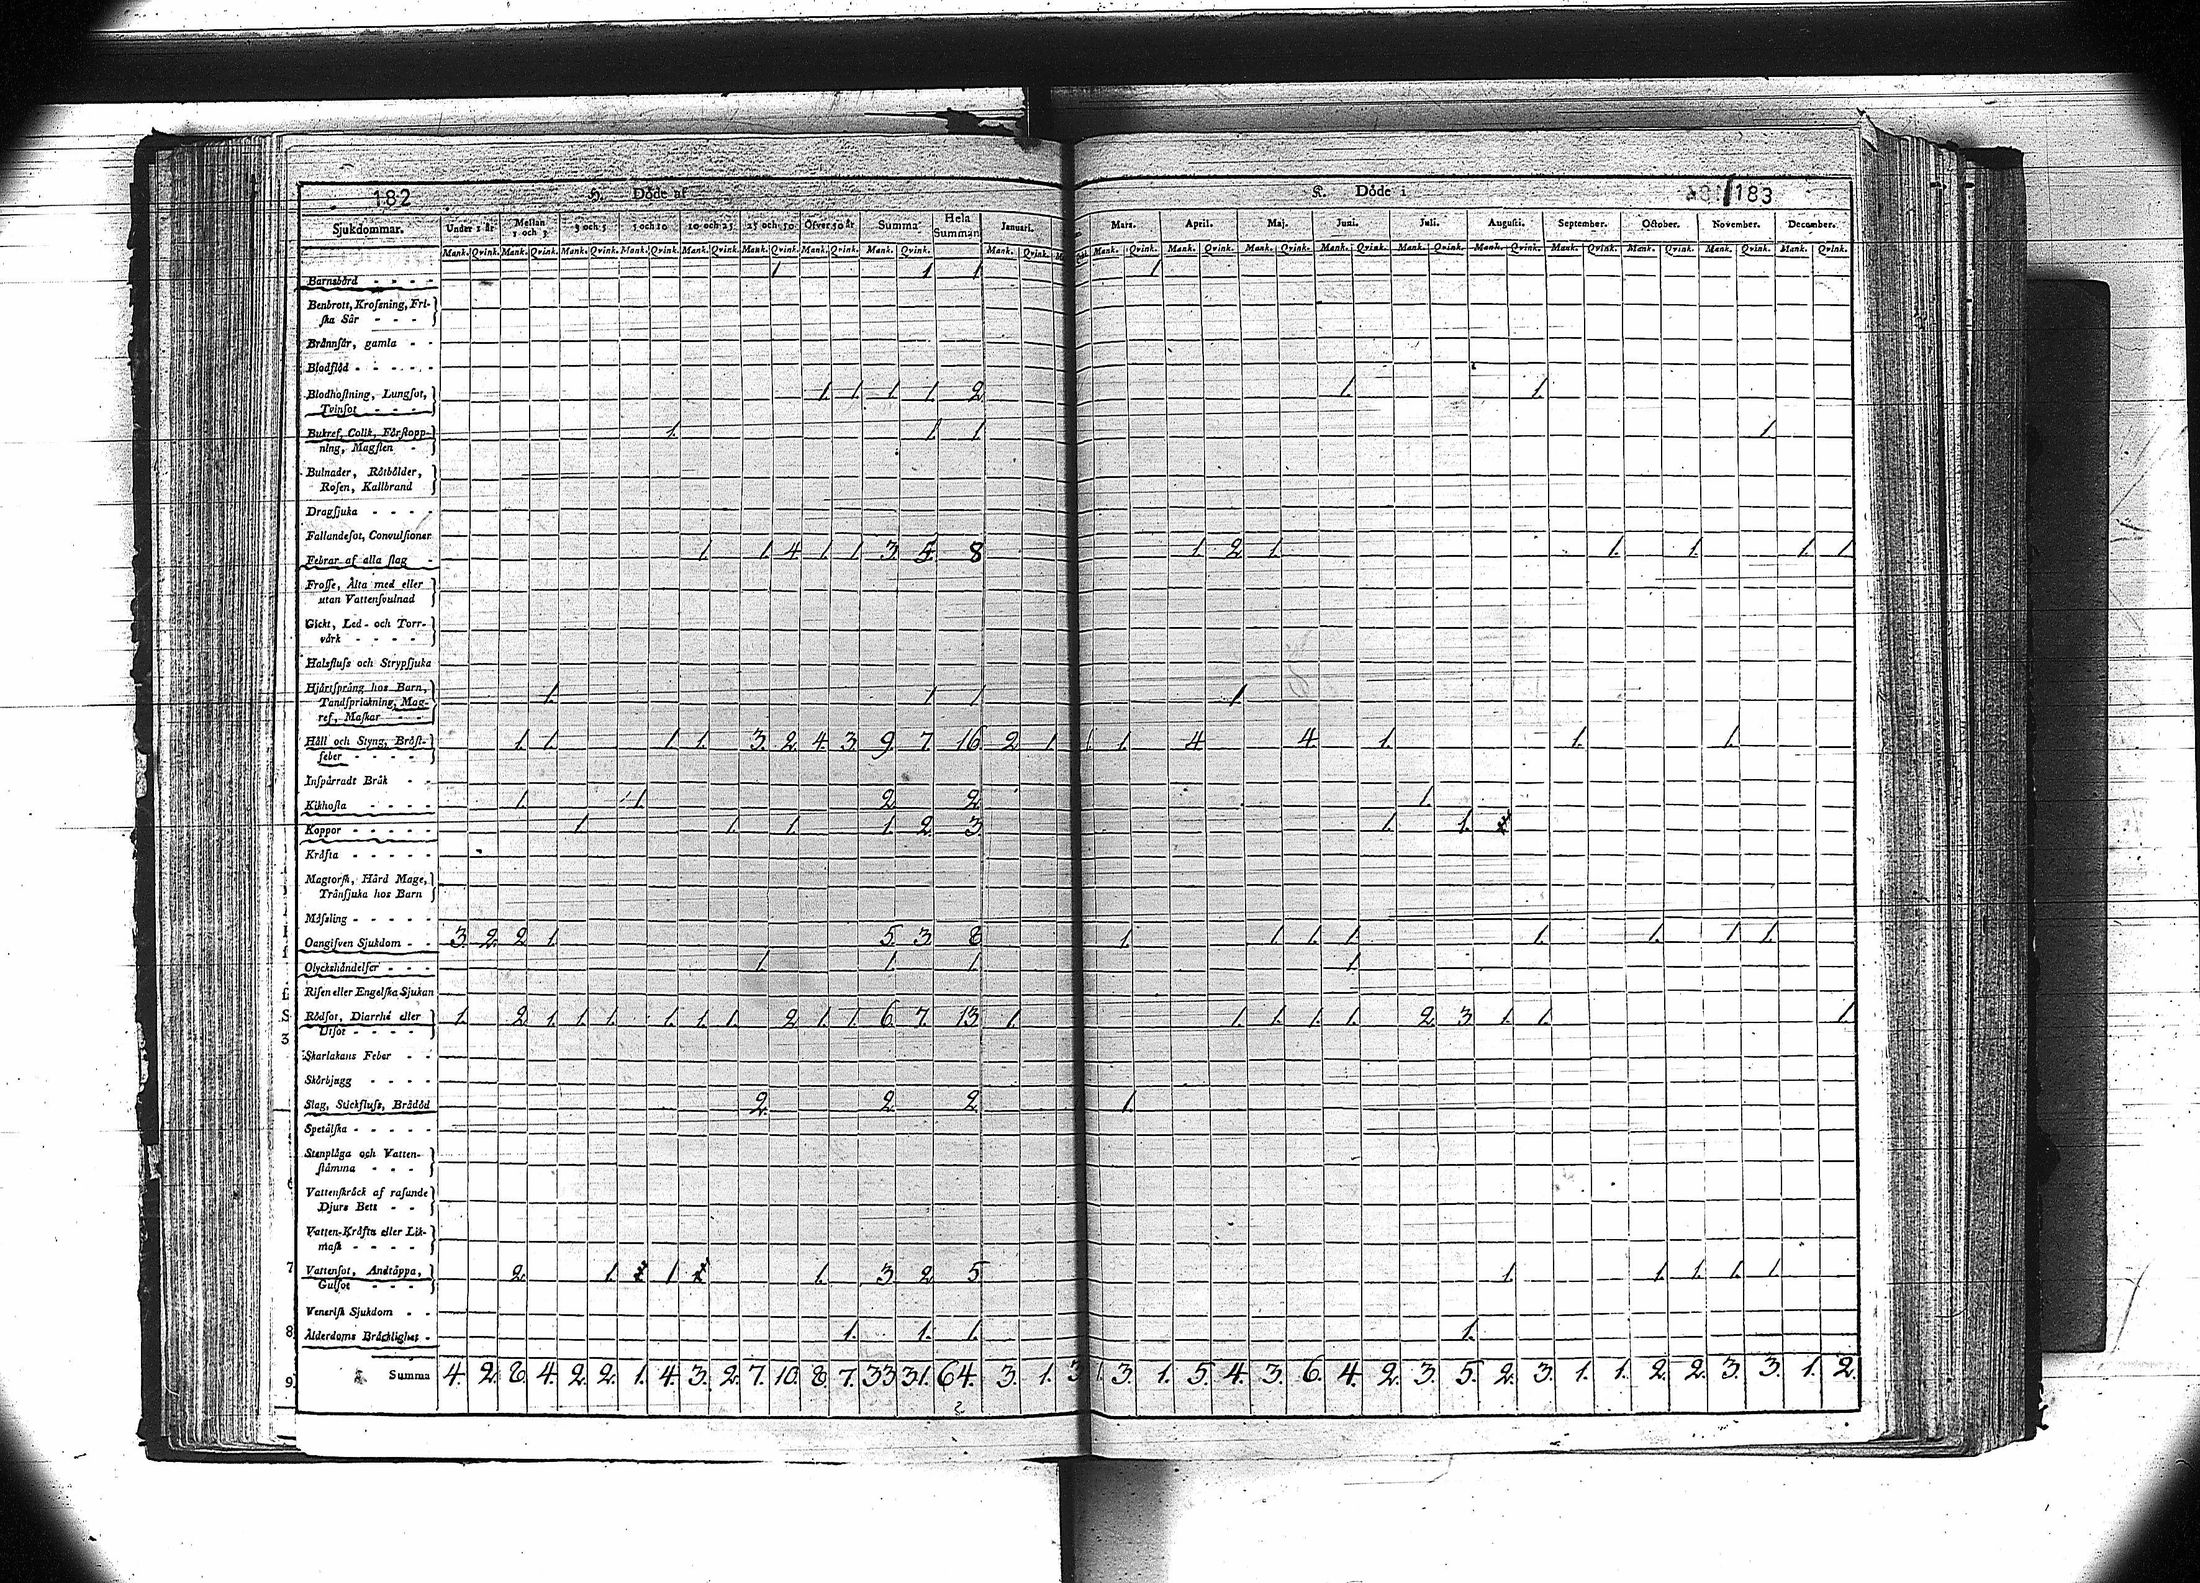 182 H. Döde af K. Döde i 183
Sjukdommar. Under 1 år Mellan 1 och 3 3 och 5 5 och 10 10 och 25 25 och 50 Öfver 50 år Summa Hela Summan Januari. Mars. April. Maj. Juni. Juli. Augusti. September. October. November. December.
Mank. Qvink. Mank. Qvink. Mank. Qvink. Mank. Qvink. Mank. Qvink. Mank. Qvink. Mank. Qvink. Mank. Qvink. Mank. Qvink. Mank. Qvink. Mank. Qvink. Mank. Qvink. Mank. Qvink. Mank. Qvink. Mank. Qvink. Mank. Qvink. Mank. Qvink. Mank. Qvink. Mank. Qvink.
Barnsbörd - - - - 1 1 1 1
Benbrott, Krosſning, Fri-
ſka Sår - - -
Brännſår, gamla - -
Blodflöd - - - - -
Blodhoſtning, Lungſot, 1. 1. 1 1. 2 1. 1.
Tvinſot - - -
Bukref, Colik, Förſtopp- 1. 1. 1 1.
ning, Magſten -
Bulnader, Rötbölder,
Roſen, Kallbrand
Dragſjuka - - - -
Fallandeſot, Convulſioner
Febrar af alla ſlag - 1. 1. 4 1. 1 3. 5. 8 1. 2 1. 1. 1. 1. 1.
Froſſe, Älta med eller
utan Vattenſvulnad
Gickt, Led- och Torr-
värk - - - -
Halsfluſs och Strypſjuka
Hjärtſpräng hos Barn, 1. 1 1 1.
Tandſprickning, Mag-
ref, Maſkar - -
Håll och Styng, Bröſt- 1. 1. 1 1. 3. 2. 4. 3. 9. 7. 16 2 1 1. 1. 4 4. 1. 1. 1.
feber - - - -
Inſpärradt Bråk - -
Kikhoſta - - - - 1. 1. 2 2. 1.
Koppor - - - - - 1 1. 1. 1. 2 3. 1. 1.
Kräfta - - - - -
Magtorſk, Hård Mage,
Tränſjuka hos Barn
Mäſsling - - - - -
Oangifven Sjukdom - - 3. 2. 2 1. 5. 3. 8 1. 1. 1. 1. 1. 1. 1 1.
Olyckshändelſer - - - 1. 1. 1. 1
Riſen eller Engelſka Sjukan
Rödſot, Diarrhé eller 1. 2 1. 1. 1. 1. 1. 1. 2 1. 1. 6. 7. 13. 1. 1. 1. 1. 1. 2. 3. 1. 1. 1.
Utſot - - - -
Skarlakans Feber - -
Skörbjugg - - - -
Slag, Stickfluſs, Brådöd 2. 2. 2. 1.
Spetälſka - - - - -
Stenplåga och Vatten-
ſtämma - - -
Vattenſkräck af raſande
Djurs Bett - -
Vatten-Kräfta eller Lik-
maſk - - - -
Vattenſot, Andtäppa, 2. 1. 1 1. 3. 2 5. 1. 1. 1. 1. 1
Gulſot - - -
Veneriſk Sjukdom - -
Ålderdoms Bräcklighet - 1. 1. 1. 1.
Summa 4. 2. 8. 4. 2. 2. 1. 4. 3. 2. 7. 10. 8. 7. 33. 31. 64. 3. 1. 3 1. 3. 1. 5. 4. 3. 6. 4. 2. 3. 5. 2. 3. 1. 1. 2. 2. 3. 3. 1. 2.